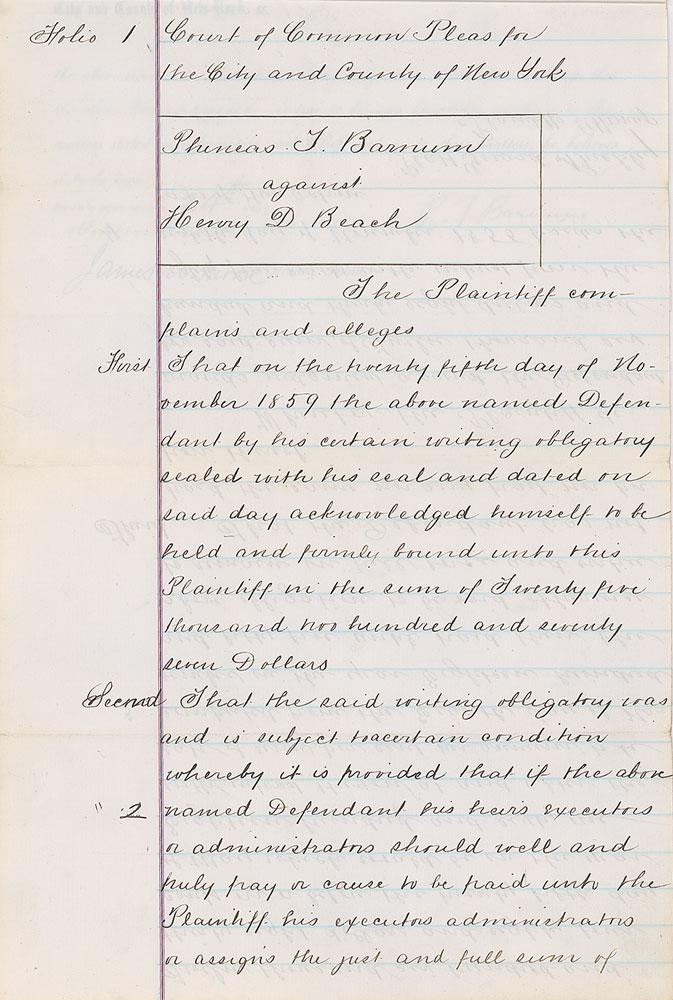 Folio 1 Court of Common Pleas for
the City and County of New York
Phineas. T. Barnum
against
Henry D Beach
The Plaintiff com-
plains and alleges
First That on the twenty fifth day of No-
vember 1859 the above named Defen-
dant by his certain writing obligatory
sealed with his seal and dated on
said day acknowledged himself to be
held and firmly bound unto this
Plaintiff in the sum of Twenty five
thousand two hundred and seventy
seven Dollars
Second That the said writing obligatory was
and is subject to a certain condition
whereby it is provided that if the above
" 2 named Defendant his heirs executors
or administrators should well and
truly pay or cause to be paid unto the
Plaintiff his executors administrators
or assigns the just and full sum of